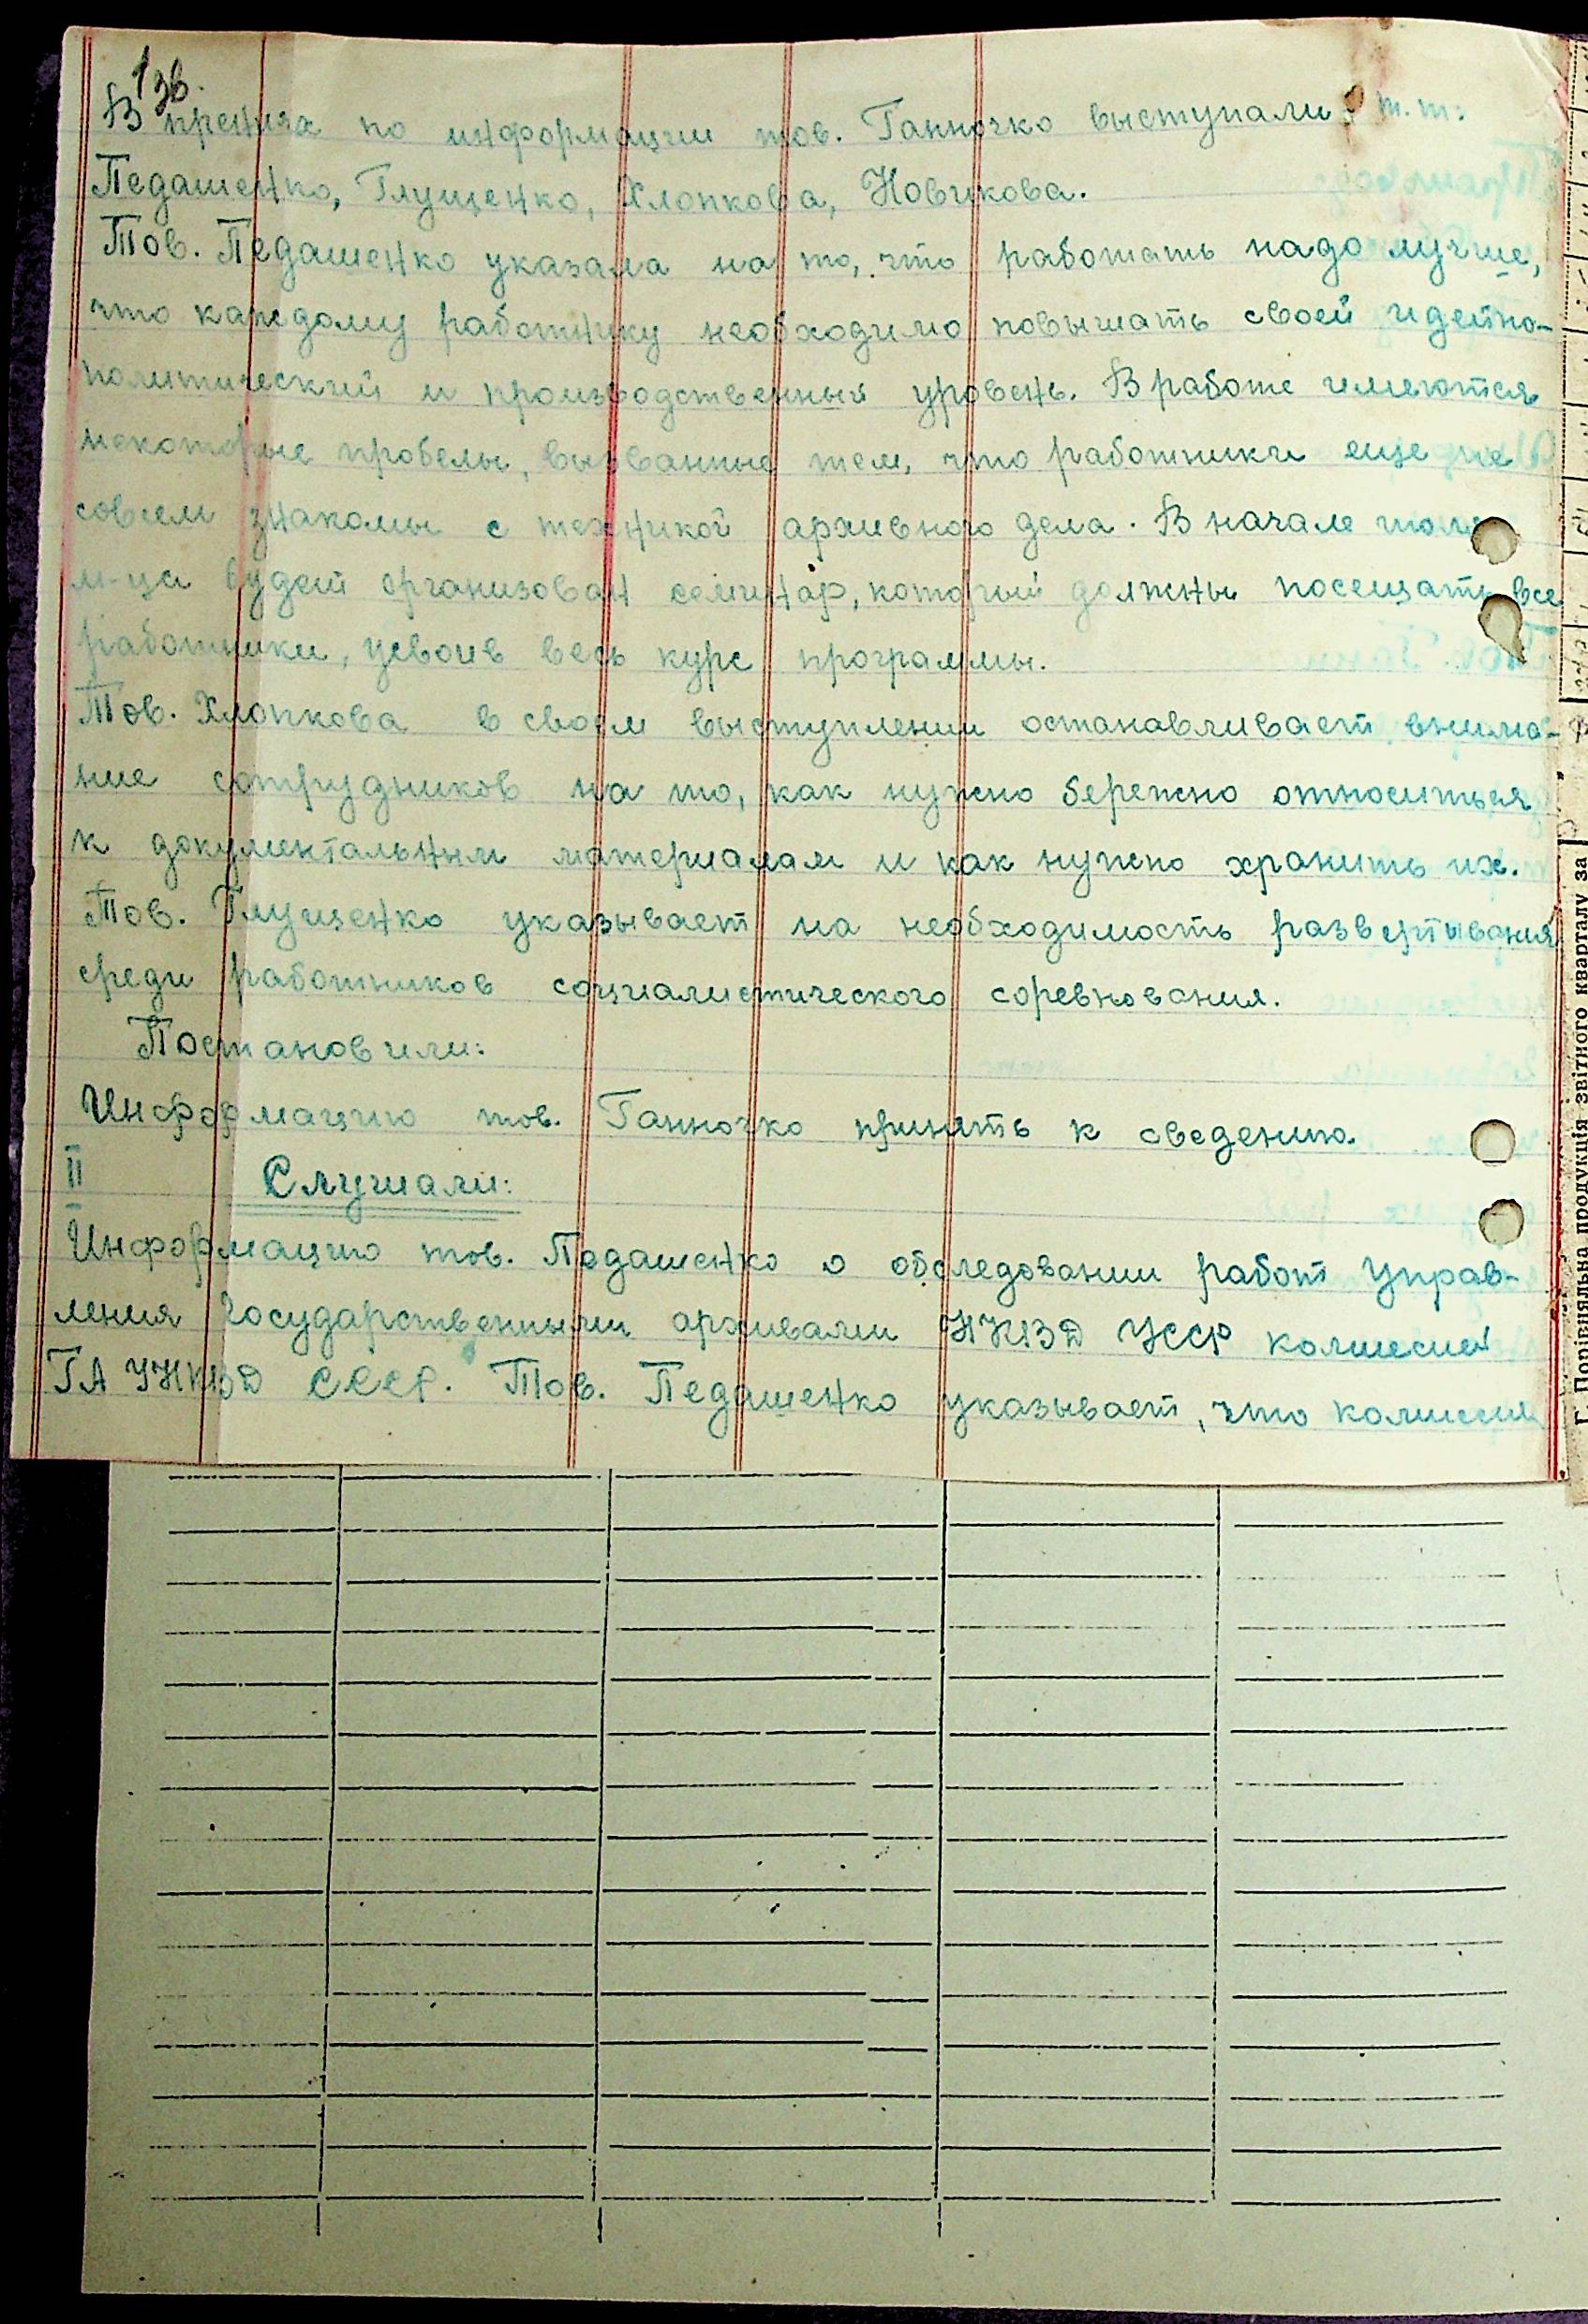 13в.
В прениях по информации тов. Ганночко выступали т.т:
Педашенко, Глущенко, Хлопкова, Новикова.
Тов. Педашенко указала на то, что работать надо лучше,
что каждому работнику необходимо повышать своей идейно-
политический и производственный уровень. В работе имеются
некоторые пробелы, вызванные тем, что работники еще не
совсем знакомы с техникой архивного дела. В начале
м-ца будет организован семинар, который должны посещать все
работники, усвоив весь курс программы.
Тов. Хлопкова в своем выступлении останавливает внима-
ние сотрудников на то, как нужно бережно относиться
к документальным материалам и как нужно хранить их.
Тов. Глущенко указывает на необходимость развертывания
среди работников социалистического соревнования.
Постановили:
Информацию тов. Ганночко принять к сведению.
II Слушали:
Информацию тов. Педашенко о обследовании работ Управ-
ления Государственными архивами НКВД УССР комиссией
ГА УНКВД СССР. Тов. Педашенко указывает, что комиссия
Г. Порівняльна продукція звітного кварталу за